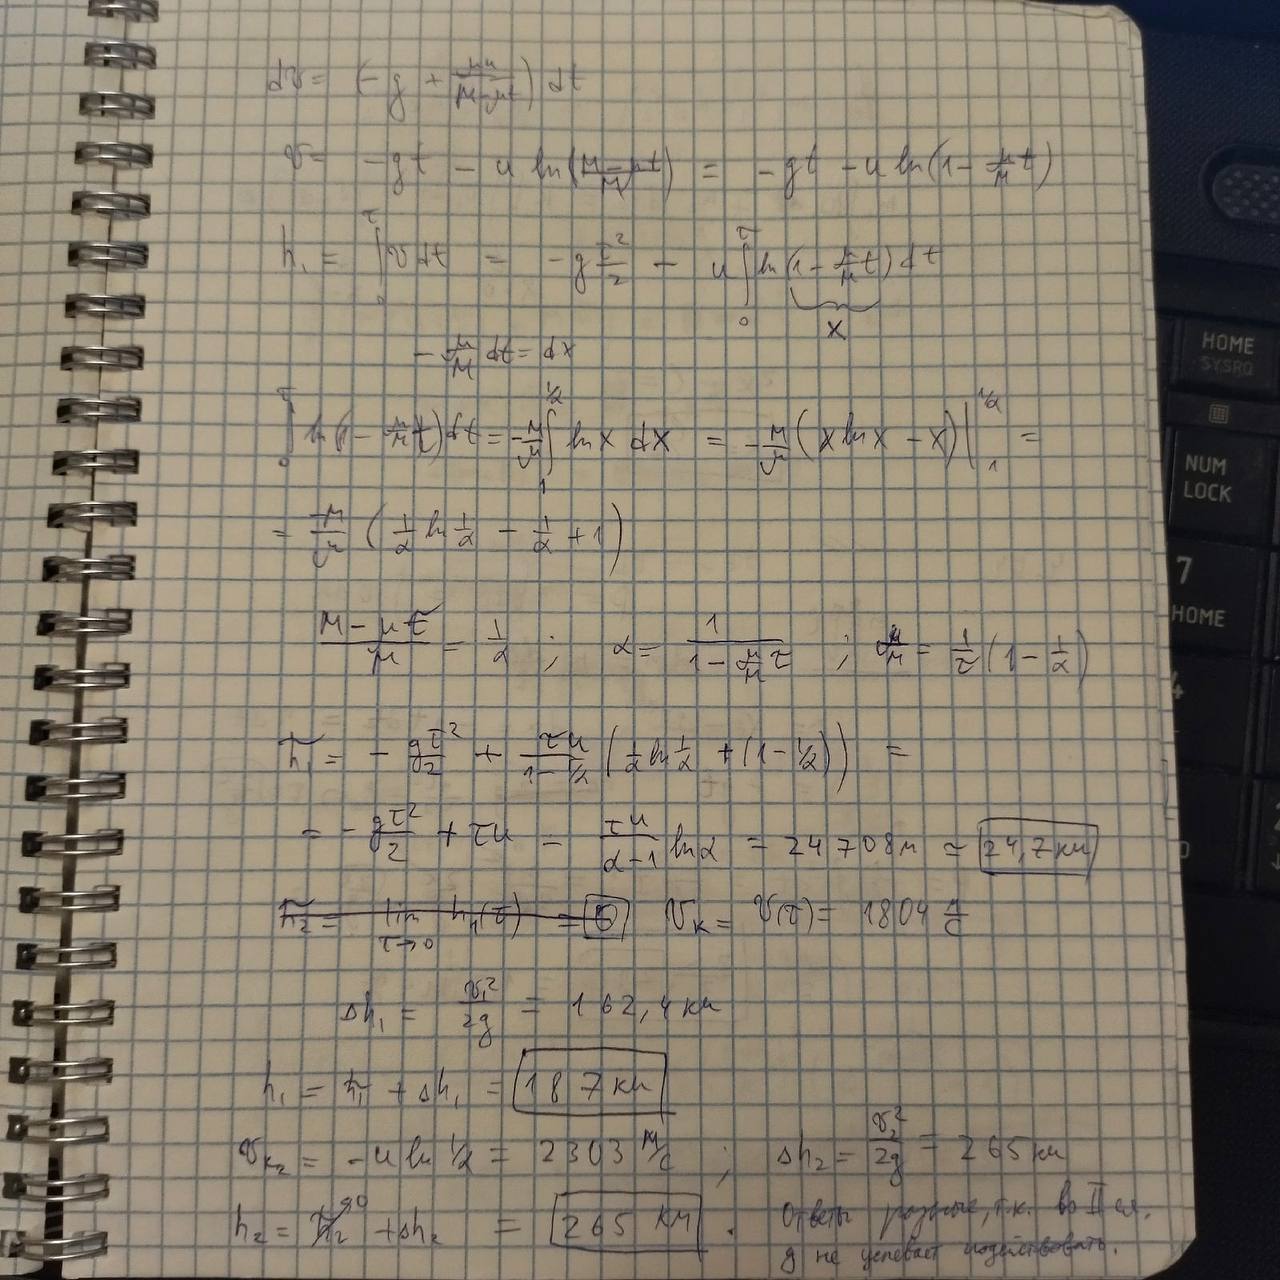 dv = (-g + μu/(M-μt)) dt
v = -gt - u ln((M-μt)/M) = -gt - u ln(1 - μ/M t)
h₁ = ∫₀^τ v dt = -g τ²/2 - u ∫₀^τ ln(1 - μ/M t) dt
x
-μ/M dt = dx
∫₀^τ ln(1 - μ/M t) dt = -M/μ ∫₁^(1/α) ln x dx = -M/μ (x ln x - x)|₁^(1/α) =
= -M/μ (1/α ln 1/α - 1/α + 1)
(M - μτ)/M = 1/α ; α = 1/(1 - μ/M τ) ; μ/M = 1/τ (1 - 1/α)
h̃₁ = - gτ²/2 + τu/(1 - 1/α) (1/α ln 1/α + (1 - 1/α)) =
= - gτ²/2 + τu - τu/(α-1) ln α = 24 708 м = 24,7 км
h̃₂ = lim_(τ→0) h₁(τ) = 0 vₖ = v(τ) = 1804 м/с
Δh₁ = v₁²/2g = 162,4 км
h₁ = h̃₁ + Δh₁ = 187 км
vₖ₂ = -u ln 1/α = 2303 м/с ; Δh₂ = v₂²/2g = 265 км
h₂ = h̃₂→0 + Δh₂ = 265 км . Ответы разные, т.к. во II сл.
g не успевает подействовать.
HOME
SYSRQ
NUM
LOCK
7
HOME
4